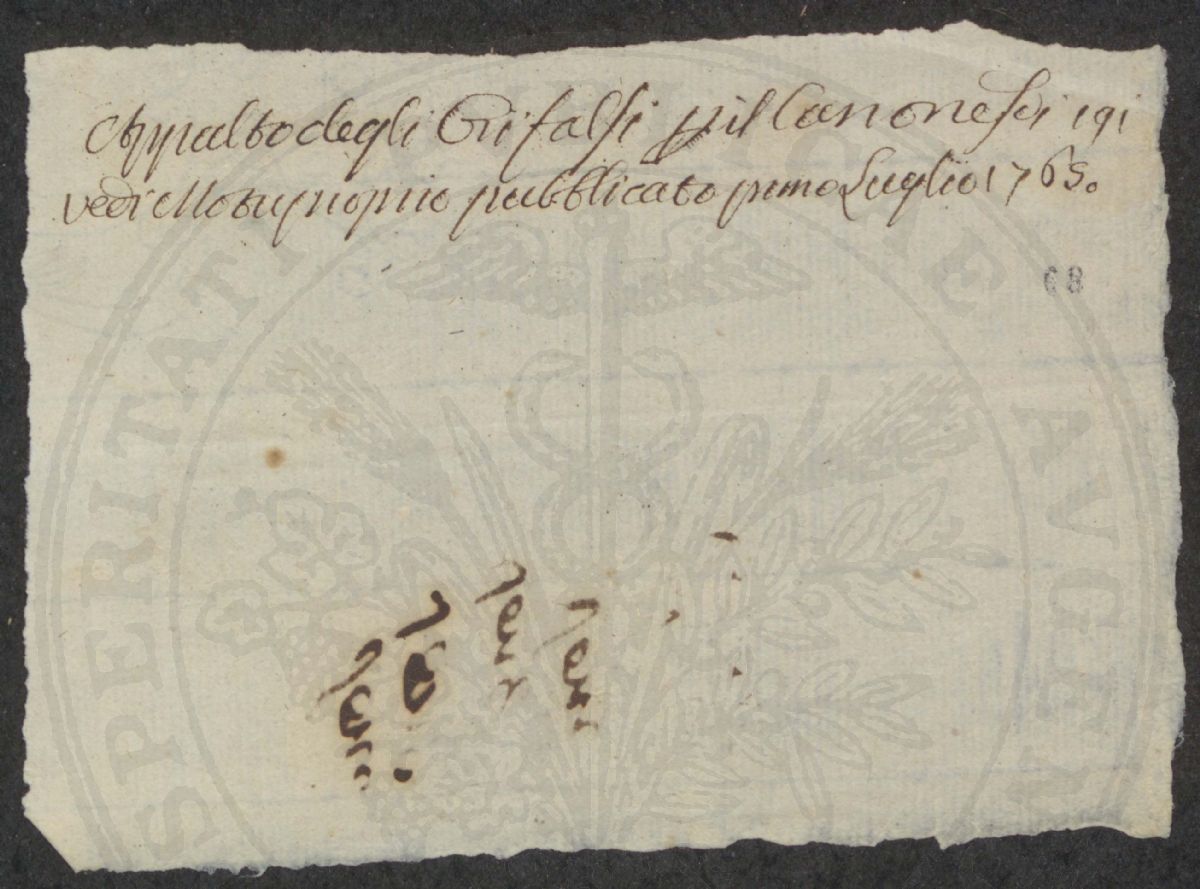 Appalto degli Ori falsi p il Canone sei 191
vedi Motuproprio pubblicato primo Luglio 1765.
68
SPERITATI PUBLICAE AVGEN